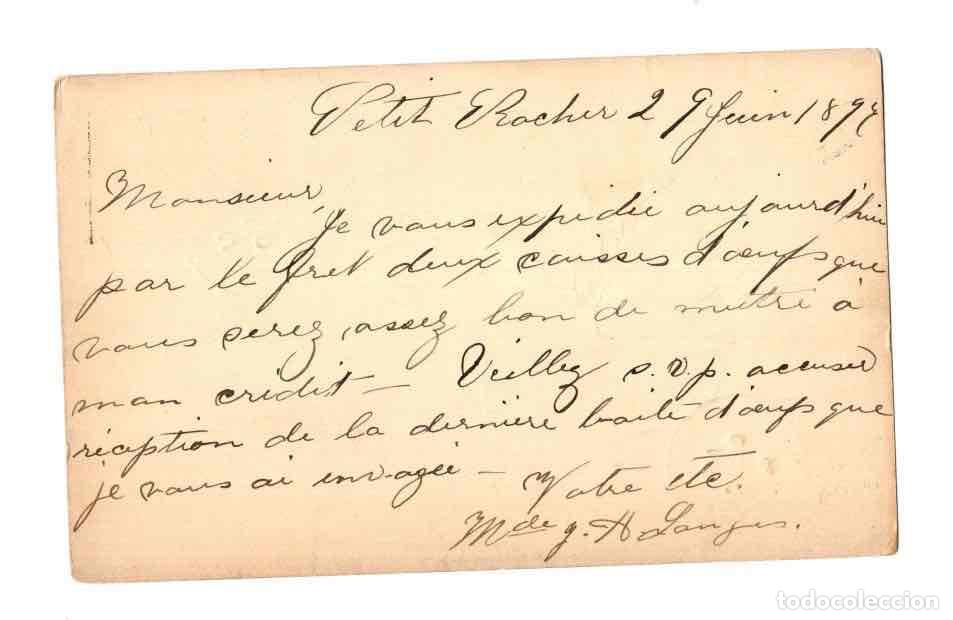 Petit Rocher 29 Juin 1897
Monsieur,
Je vous expédie aujourd'hui
par le fret deux caisses d'œufs que
vous serez assez bon de mettre à
mon crédit — Veillez s.v.p. accuser
réception de la dernière boite d'œufs que
je vous ai envoyée — Votre etc.
Mde J. H Langis.
todocoleccion